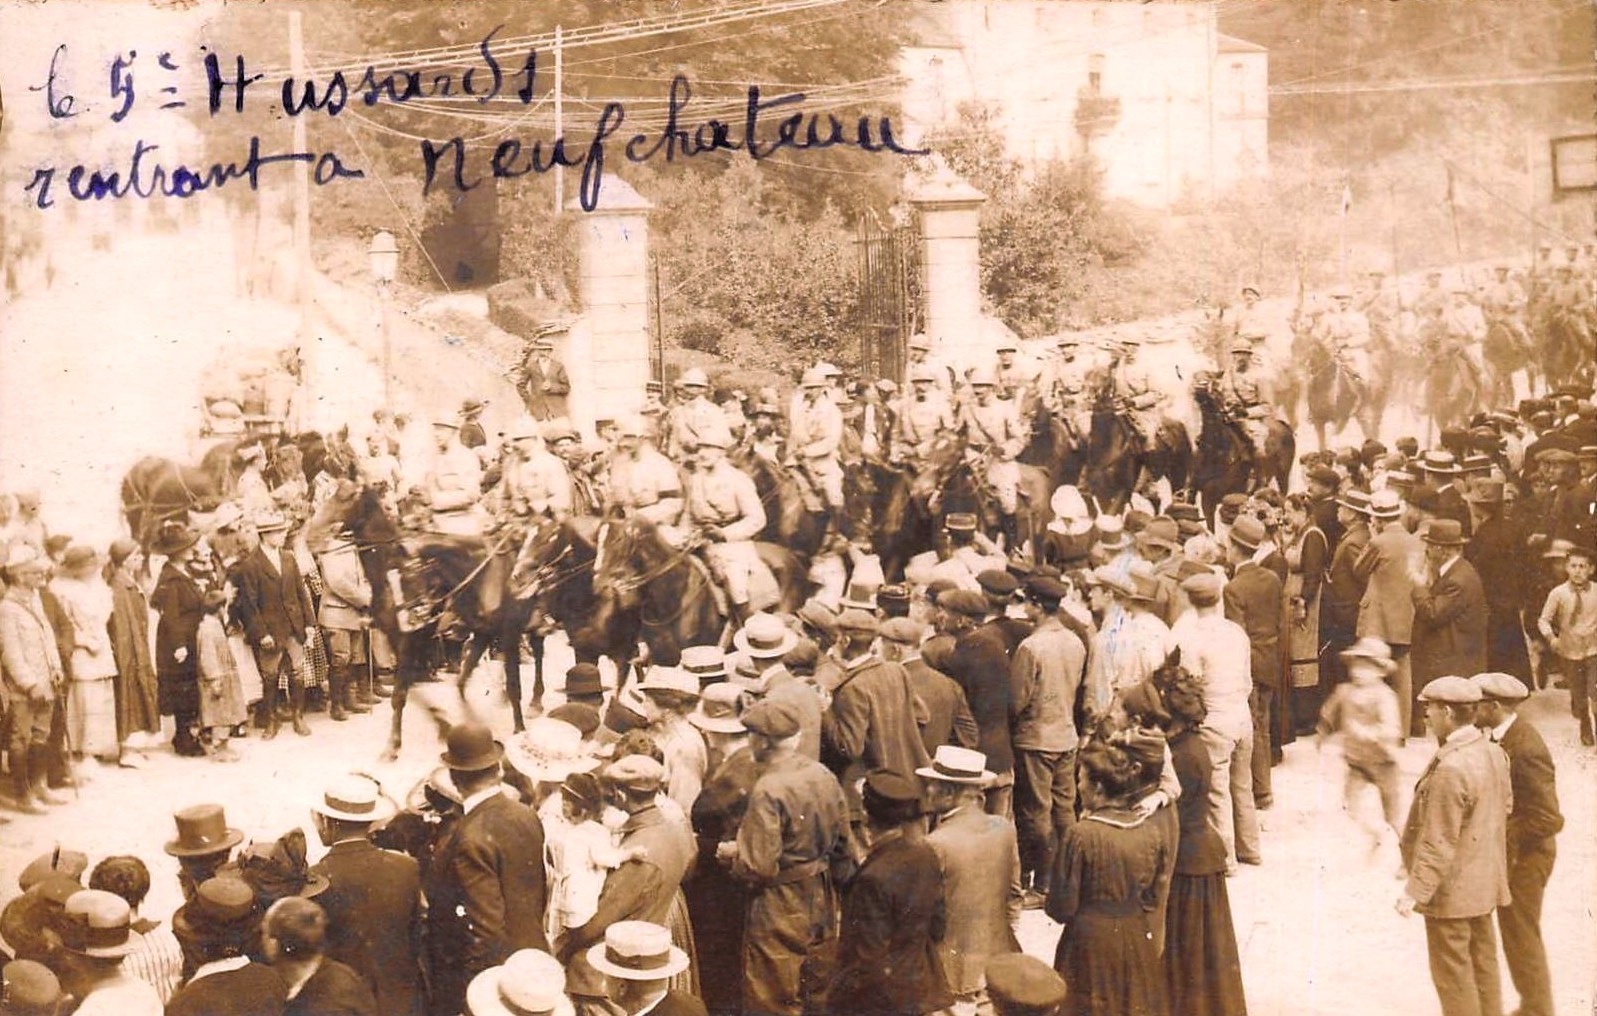 le 5e Hussards
rentrant a Neufchateau